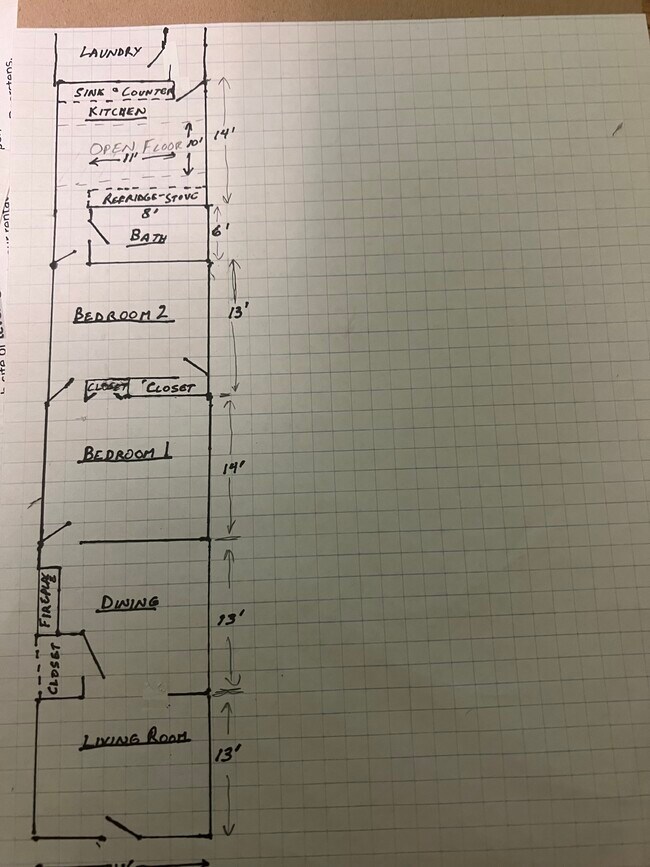 LAUNDRY
SINK & COUNTER
KITCHEN
14'
OPEN FLOOR
10'
11'
REFRIDGE-STOVE
8'
6'
BATH
BEDROOM 2
13'
CLOSET
CLOSET
BEDROOM 1
14'
FIREPLACE
DINING
13'
CLOSET
LIVING ROOM
13'